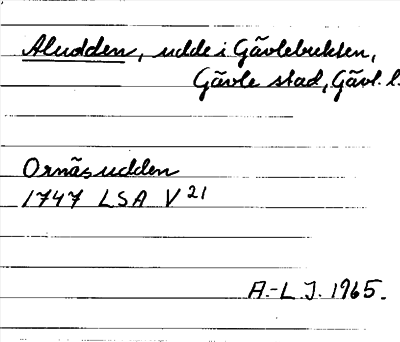 Aludden, udde i Gävlebukten,
Gävle stad, Gävl. l.
Ornäsudden
1747 LSA V 21
A.-L J. 1965.